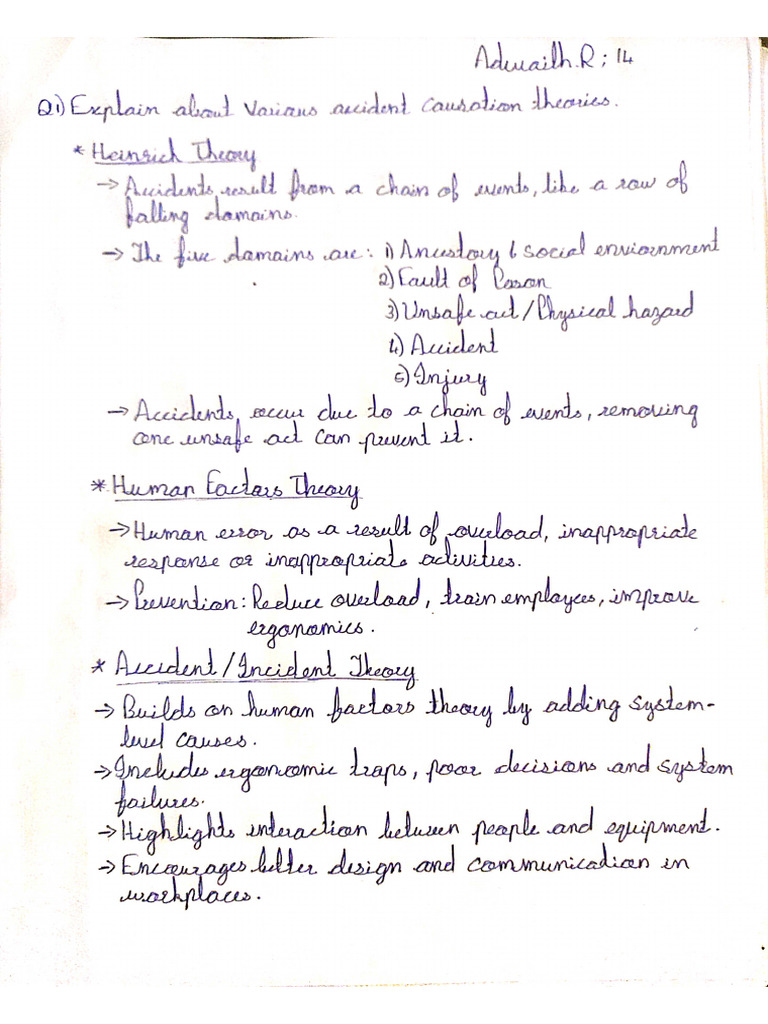 Adwaith.R; 14
Q1) Explain about various accident causation theories.
* Heinrich Theory
-> Accidents result from a chain of events, like a row of
falling domains.
-> The five domains are: 1) Ancestory & social enviornment
2) Fault of Person
3) Unsafe act / Physical hazard
4) Accident
5) Injury
-> Accidents occur due to a chain of events, removing
one unsafe act can prevent it.
* Human Factors Theory
-> Human error as a result of overload, inappropriate
response or inappropriate activities.
-> Prevention: Reduce overload, train employees, improve
ergonomics.
* Accident / Incident Theory
-> Builds on human factors theory by adding system-
level causes.
-> Includes ergonomic traps, poor decisions and system
failures.
-> Highlights interaction between people and equipment.
-> Encourages better design and communication in
workplaces.